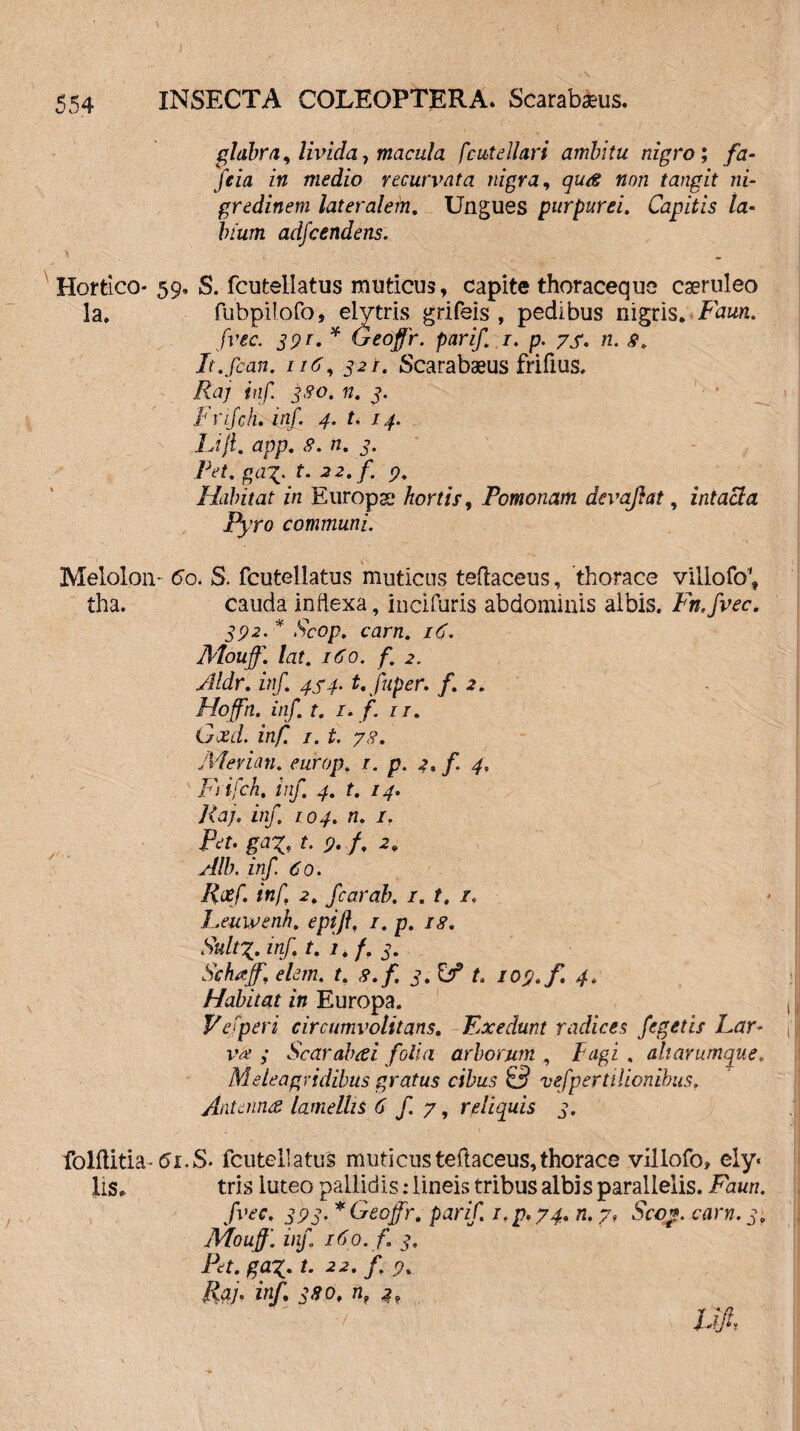 554 INSECTA COLEOPTERA. Scarabæus.
glabra, livida, macula ſcutellari ambitu nigro; fa-
ſcia in medio recurvata nigra, quæ non tangit ni-
gredinem lateralem. Ungues purpurei. Capitis la-
bium adſcendens.
Hortico- 59. S. ſcutellatus muticus, capite thoraceque cæruleo
la. ſubpiloſo, elytris griſeis, pedibus nigris. Faun.
ſvec. 391. * Geoffr. pariſ. 1. p. 75. n. 8.
It. ſcan. 116, 321. Scarabæus friſius.
Raj inſ. 380. n. 3.
Friſch. inſ. 4. t. 14.
Liſt. app. 8. n. 3.
Pet. gaz. t. 22. f. 9.
Habitat in Europæ hortis, Pomonam devaſtat, intacta
Pyro communi.
Melolon- 60. S. ſcutellatus muticus teſtaceus, thorace villoſo,
tha. cauda inflexa, inciſuris abdominis albis. Fn. ſvec.
392. * Scop. carn. 16.
Mouff. lat. 160. f. 2.
Aldr. inſ. 454. t. ſuper. f. 2.
Hoffn. inſ. t. 1. f. 11.
Gœd. inſ. 1. t. 78.
Merian. europ. 1. p. 2. f. 4.
Friſch. inſ. 4. t. 14.
Raj. inſ. 104. n. 1.
Pet. gaz. t. 9. f. 2.
Alb. inſ. 60.
Rœſ. inſ. 2. ſcarab. 1. t. 1.
Leuwenh. epiſt. 1. p. 18.
Sultz. inſ. t. 1. f. 3.
Schæff. elem. t. 8. f. 3. & t. 109. f. 4.
Habitat in Europa.
Veſperi circumvolitans. Exedunt radices ſegetis Lar-
væ; Scarabæi folia arborum, Fagi, aliarumque.
Meleagridibus gratus cibus & veſpertilionibus.
Antennæ lamellis 6 ſ. 7, reliquis 3.
ſolſtitia- 61. S. ſcutellatus muticus teſtaceus, thorace villoſo, ely-
lis. tris luteo pallidis: lineis tribus albis parallelis. Faun.
ſvec. 393. * Geoffr. pariſ. 1. p. 74. n. 7. Scop. carn. 3.
Mouff. inſ. 160. f. 3.
Pet. gaz. t. 22. f. 9.
Raj. inſ. 380. n. 2.
Liſt.